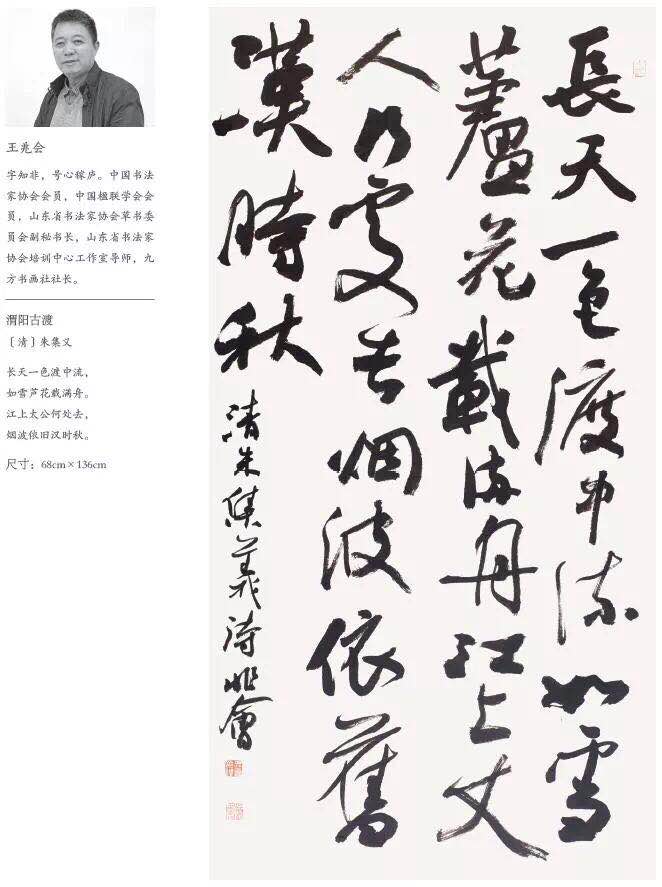 王兆会
字知非，号心稼庐。中国书法
家协会会员，中国楹联学会会
员，山东省书法家协会草书委
员会副秘书长，山东省书法家
协会培训中心工作室导师，九
方书画社社长。
渭阳古渡
［清］朱集义
长天一色渡中流，
如雪芦花载满舟。
江上太公何处去，
烟波依旧汉时秋。
尺寸：68cm×136cm
長天一色渡中流如雪
蘆花載满舟江上丈
人何處去烟波依舊
漢時秋
清朱集義詩兆會